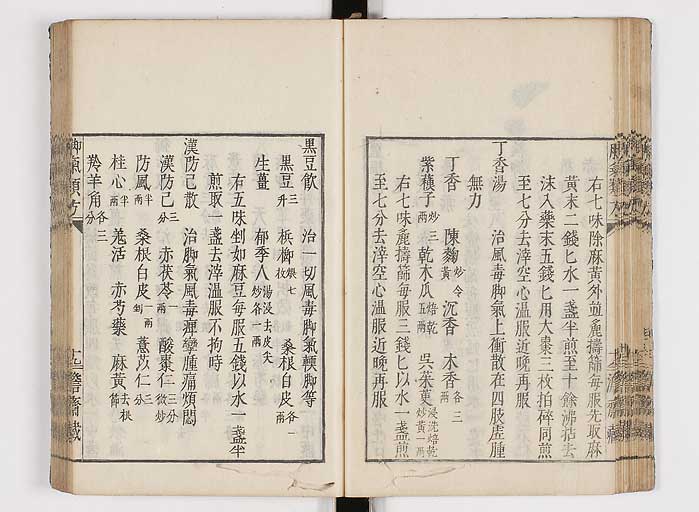 右七味除麻黄外並麄擣篩每服先取麻
黄末二錢匕水一盞半煎至十餘沸掂去
沫入藥末五錢匕用大棗三枚拍碎同煎
至七分去滓空心溫服近晚再服
丁香湯 治風毒脚氣上衝散在四肢虛腫
無力
丁香 陳麴炒令黄 沉香 木香各三兩
紫蘓子炒三兩 乾木瓜焙乾五兩 吳茱萸浸洗焙乾炒黄一兩
右七味麄擣篩每服三錢匕以水一盞煎
至七分去滓空心溫服近晚再服
黑豆飲 治一切風毒脚氣輭脚等
黑豆三升 梹榔七枚 桑根白皮各一兩
生薑 郁李人湯浸去皮尖炒各一兩
右五味剉如麻豆每服五錢以水一盞半
煎取一盞去滓溫服不拘時
漢防己散 治脚氣風毒痺攣腫痛煩悶
漢防己三分 赤茯苓兩 酸棗仁三分微炒
防風半兩 桑根白皮一兩剉 薏苡仁三分
桂心半兩 羌活 赤芍藥 麻黄去根節
羚羊角各三分
脚氣類方
十二
齋藏